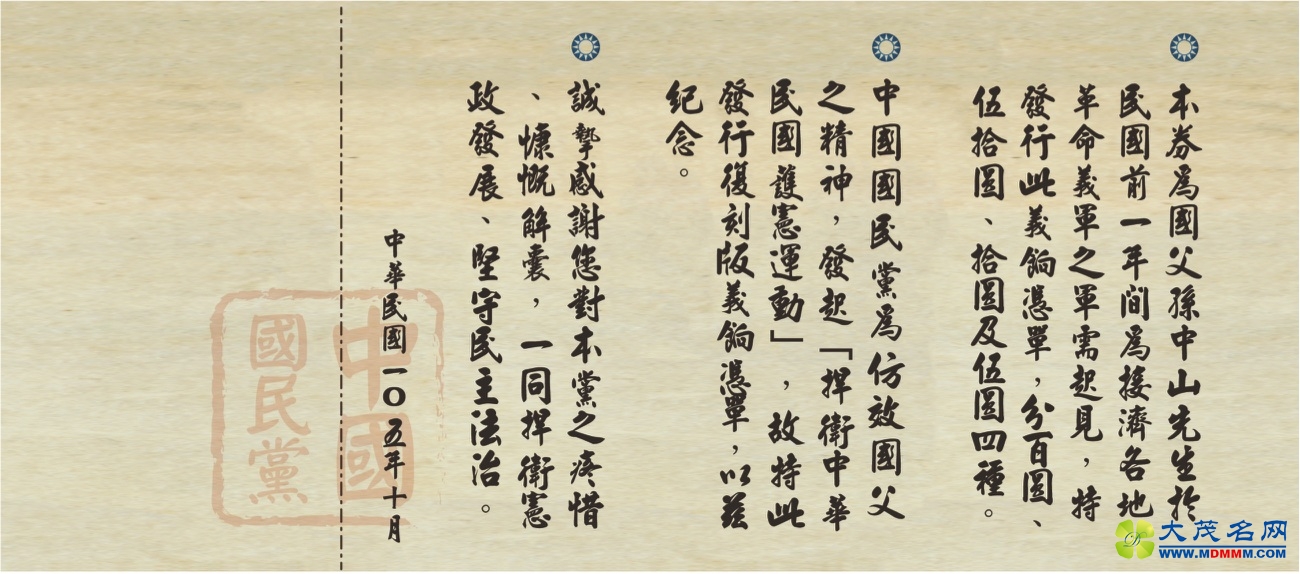 本券為國父孫中山先生於
民國前一年間為接濟各地
革命義軍之軍需起見，特
發行此義餉憑單，分百圓、
伍拾圓、拾圓及伍圓四種。
中國國民黨為仿效國父
之精神，發起「捍衛中華
民國護憲運動」，故特此
發行復刻版義餉憑單，以茲
紀念。
誠摯感謝您對本黨之疼惜
、慷慨解囊，一同捍衛憲
政發展、堅守民主法治。
中華民國一〇五年十月
中國
國民黨
大茂名网
WWW.MDMMM.COM